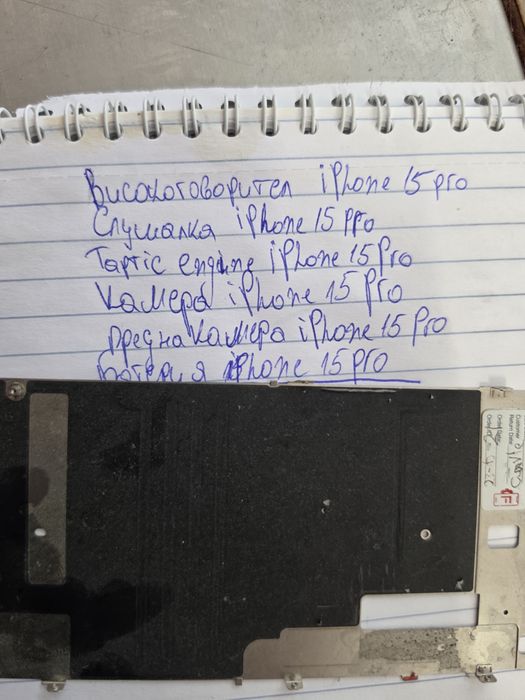 Високоговорител iPhone 15 pro
Слушалка iPhone 15 pro
Taptic engine iPhone 15 Pro
Камера iPhone 15 Pro
предна камера iPhone 15 Pro
батерия iPhone 15 pro
Customer
Return Date
Order Date
Order